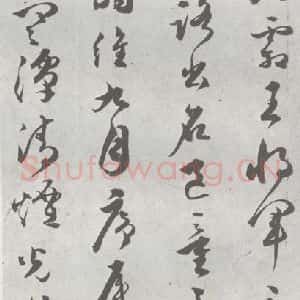 霜王將軍之
路出名區童
時維九月序屬
寒潭清煙光
Shufawang.CN